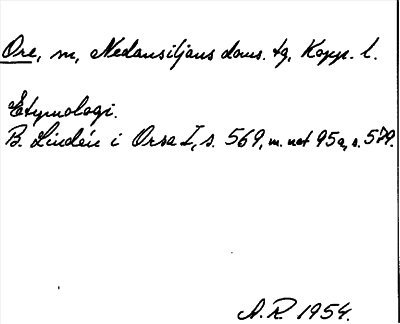 Ore, sn, Nedansiljans doms. tg, Kopp. l.
Etymologi.
B. Lindén i Orsa I, s. 569, m. not 95a, s. 579.
A. R. 1954.